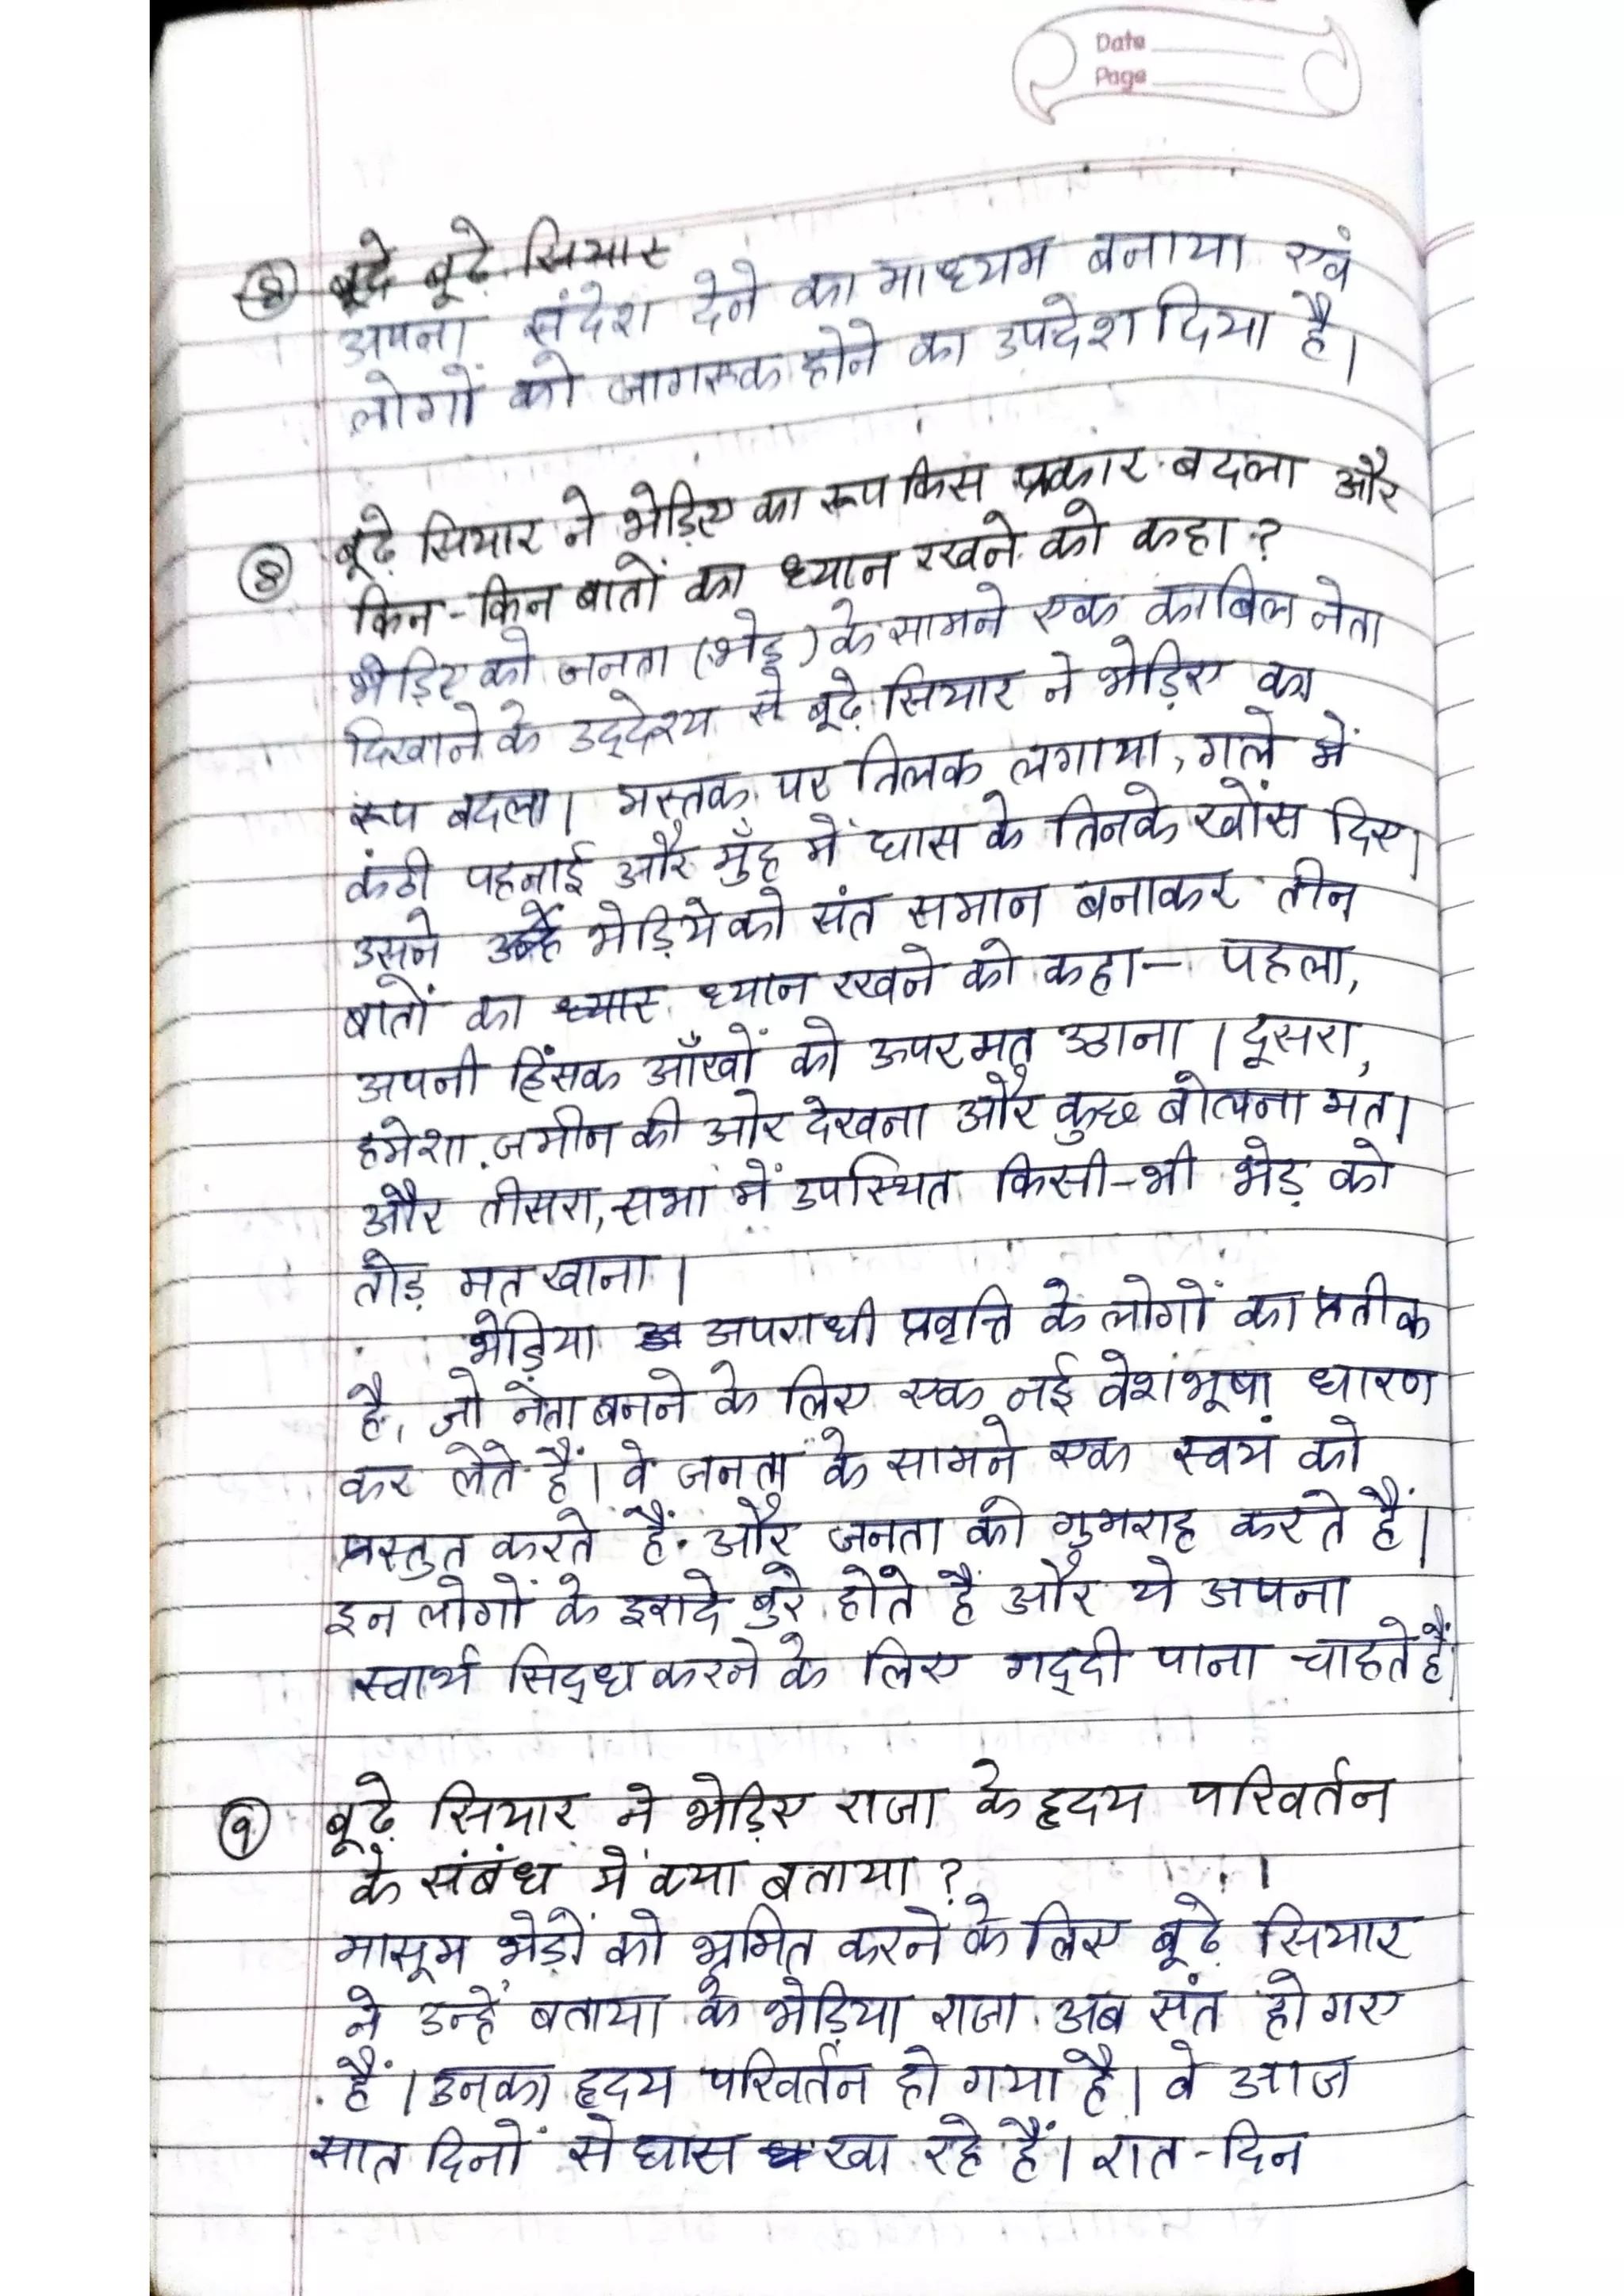 Date
Page
⑧ बूढ़े बूढ़े सियार
अपना संदेश देने का माध्यम बनाया एवं
लोगों को जागरूक होने का उपदेश दिया है।
⑧ बूढ़े सियार ने भेड़िए का रूप किस प्रकार बदला और
किन-किन बातों का ध्यान रखने को कहा?
भेड़िए को जनता (भेड़) के सामने एक काबिल नेता
दिखाने के उद्देश्य से बूढ़े सियार ने भेड़िए का
रूप बदला। मस्तक पर तिलक लगाया, गले में
कंठी पहनाई और मुँह में घास के तिनके खोंस दिए।
उसने उन्हें भेड़िये को संत समान बनाकर तीन
बातों का ध्यार ध्यान रखने को कहा- पहला,
अपनी हिंसक आँखों को ऊपर मत उठाना। दूसरा,
हमेशा जमीन की ओर देखना और कुछ बोलना मत।
और तीसरा, सभा में उपस्थित किसी-भी भेड़ को
तोड़ मत खाना।
भेड़िया अ अपराधी प्रवृत्ति के लोगों का प्रतीक
है, जो नेता बनने के लिए एक नई वेशभूषा धारण
कर लेते हैं। वे जनता के सामने एक स्वयं को
प्रस्तुत करते हैं और जनता को गुमराह करते हैं।
इन लोगों के इरादे बुरे होते हैं और ये अपना
स्वार्थ सिद्ध करने के लिए गद्दी पाना चाहते हैं।
⑨ बूढ़े सियार ने भेड़िए राजा के हृदय परिवर्तन
के संबंध में क्या बताया?
मासूम भेड़ों को भ्रमित करने के लिए बूढ़े सियार
ने उन्हें बताया के भेड़िया राजा अब संत हो गए
हैं। उनका हृदय परिवर्तन हो गया है। वे आज
सात दिनों से घास खा रहे हैं। रात-दिन